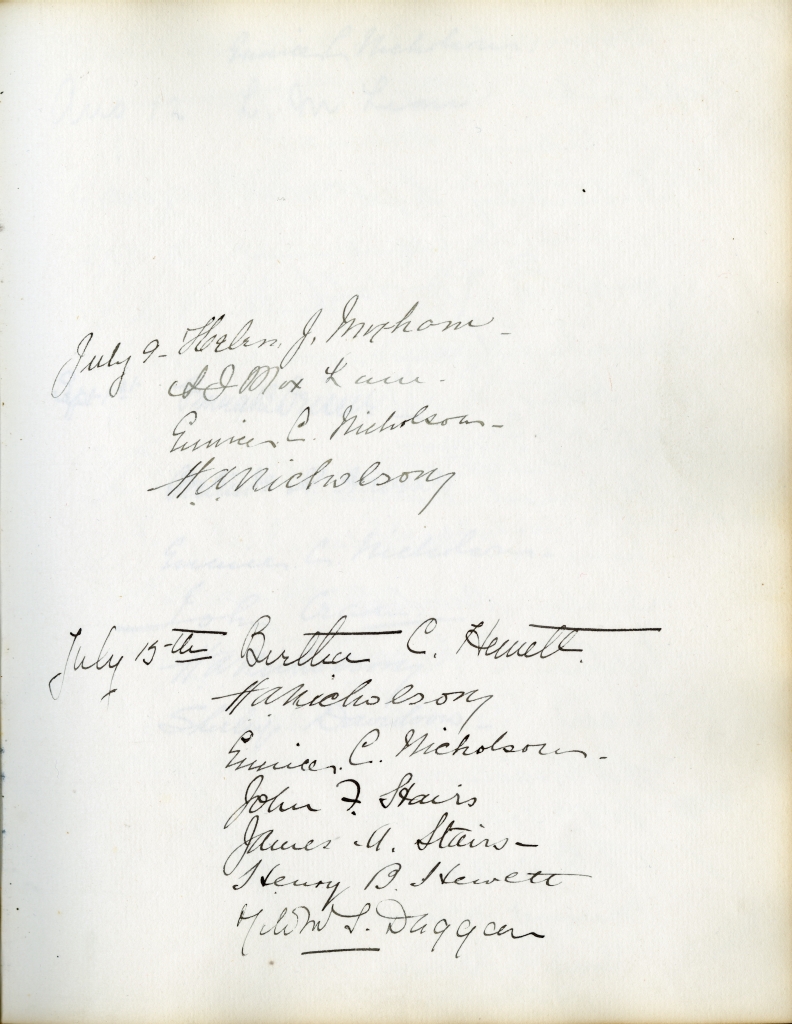 July 9 - Helen J. Moxham -
Eunice C. Nicholson -
H.A. Nicholson
July 15th Bertha C. Hewett.
H.A. Nicholson
Eunice C. Nicholson -
John F. Stairs
James A. Stairs -
Henry B. Hewett
S. Duggan